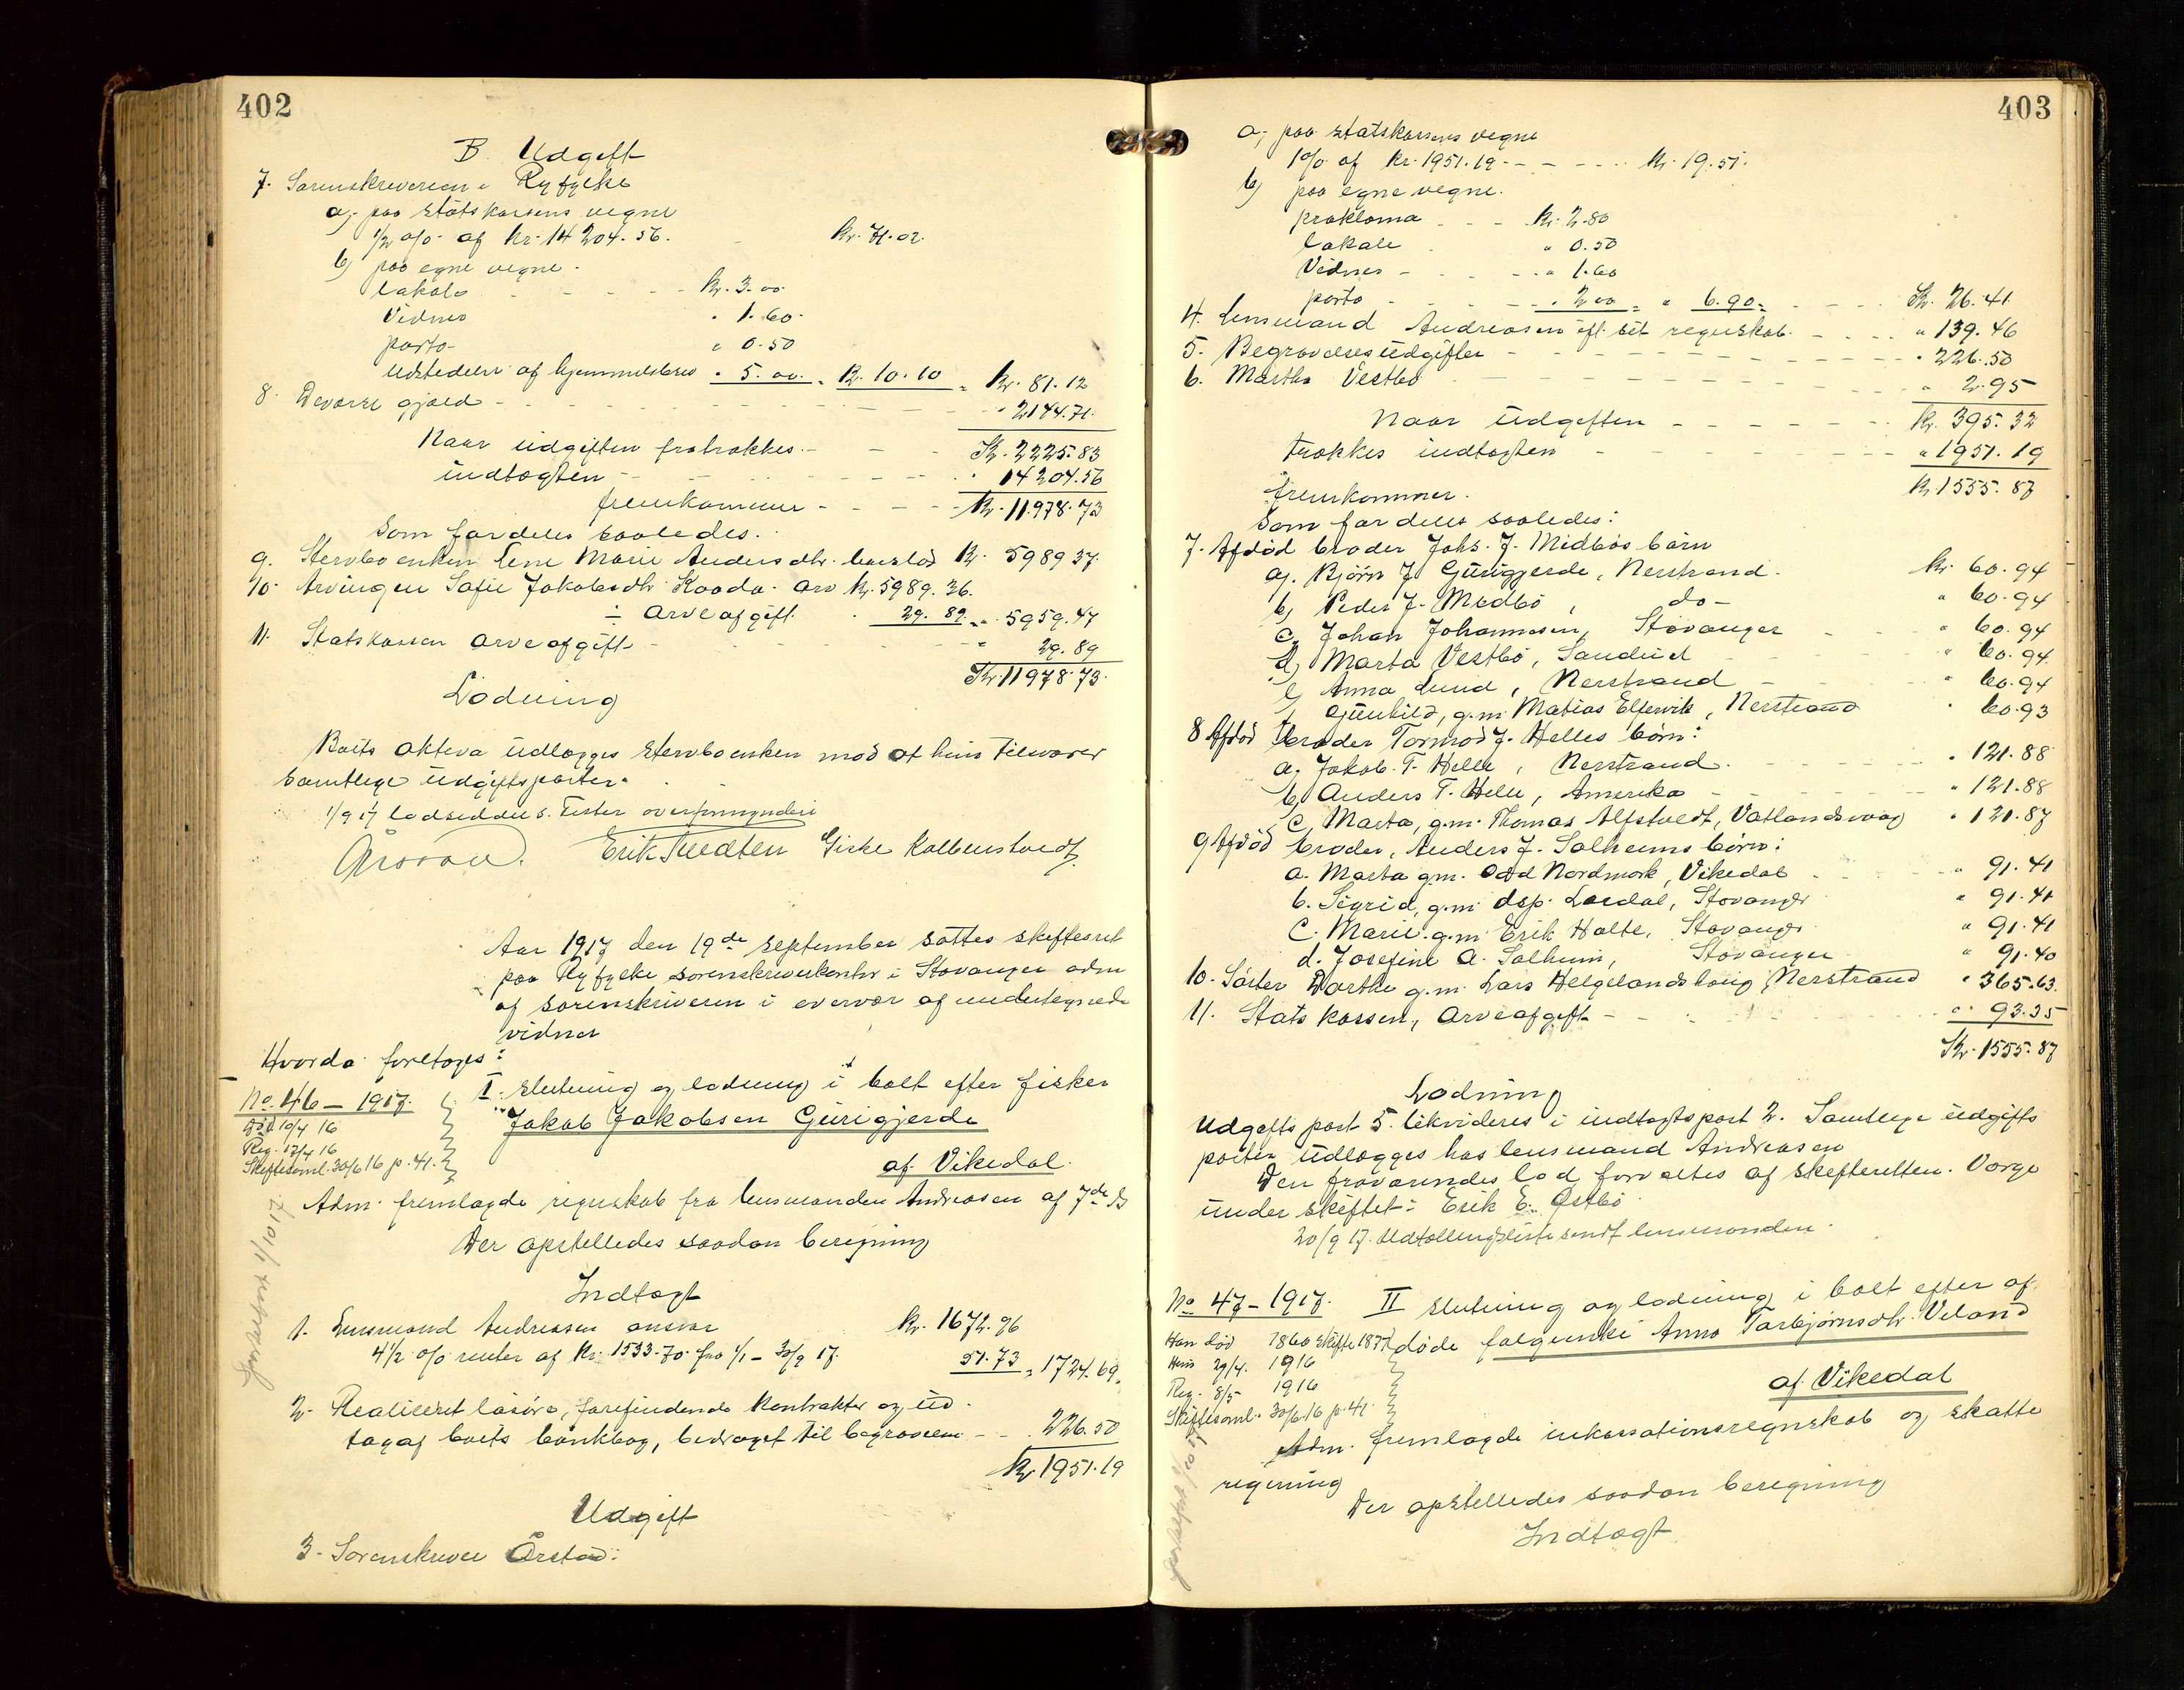 402
B. Udgift
7. Sorenskriveren i Ryfylke
a, paa statskassens vegne
1/2 o/o af kr. 14 204.56. kr. 71.02.
b) paa egne vegne.
lokale kr. 3.00.
Vidner " 1.60.
porto " 0.50
Udstedelse af hjemmelsbrev " 5.00. = kr. 10.10 = kr. 81.12
8. Diverse gjæld " 2144.71.
Naar udgiften fratrækkes Kr. 2225.83
indtægten " 14204.56
fremkommer kr. 11978.73
Som fordeles saaledes.
9. Stervboenken Lene Marie Andersdtr. boeslod kr. 5989 37.
10. Arvingen Sofie Jakobsdtr. Kaada. arv kr. 5989.36.
÷ arveafgift. 29.89 = " 5959.47
11. Statskassen arveafgift " 29.89
Kr. 11978.73.
Lodning
Boets aktiva udlægges stervboenken mod at hun tilsvarer
samtlige udgiftsposter.
1/9 17 lodseddel s. Tister overformynderi
Erik Tuedten Girke Kolbenstvedt
Aar 1917 den 19de september sattes skifteret
paa Ryfylke sorenskriverkontor i Stavanger adm
af sorenskriveren i overvær af undertegnede
vidner
Hvorda foretoges:
No. 46 - 1917.
Död 10/4 16
Reg. 17/4 16
Skiftesaml. 30/6 16 p. 41.
I. slutning og lodning i bolt efter fisker
Jakob Jakobsen Gurigjerde
af Vikedal.
Adm. fremlagde regnskab fra lensmanden Andreasen af 7de ds
Der opstilledes saadan beregning
Indtægt
1. Lensmand Andreasen ansvar kr. 1672.96
4 1/2 o/o renter af kr. 1533.70 fra 1/1 - 30/9 17. 51.73 = 1724.69.
2. Realiseret løsøre, forefindende kontrakter og ud-
tag af boets bankbog, bedraget til begravelsen " 226.50
Kr. 1951.19
Udgift
3. Sorenskriver Örstad:
403
a, paa statskassens vegne
1 o/o af kr. 1951.19 kr. 19.51.
b) paa egne vegne.
proklama kr. 2.80
lokale " 0.50
Vidner " 1.60
porto " 2.00 = " 6.90 = Kr. 26.41
4. Lensmand Andreasen eft. sit regnskab " 139.46
5. Begravelsesudgifter " 226.50
6. Martha Vestbö " 2.95
Naar udgiften kr. 395.32
trækkes indtægten " 1951.19
fremkommer. kr. 1555.87
Som fordeles saaledes:
7. Afdöd broder Johs. J. Medbös börn
a). Björn J. Gurigjerde, Nerstrand. kr. 60.94
b) Peder J. Medbö, do- " 60.94
c) Johan Johannesen, Stavanger " 60.94
d) Marta Vestbö, Sandeid " 60.94.
e) Anna Lund, Nerstrand " 60.94
f) Gunhild, g.m. Matias Elfsvik, Nerstrand " 60.93
8 Afdöd broder Tormod J. Helles börn:
a. Jakob T. Helle, Nerstrand. " 121.88
b) Anders T. Helle, Amerika " 121.88
c, Marta, g.m. Thomas Alfstvedt, Vatlandsvaag " 121.87
9 Afdöd broder, Anders J. Solheims börn:
a. Marta g.m. Odd Nordmork, Vikedal " 91.41
b. Sigrid, g.m. dsp. Lasdal, Stavanger " 91.41
c. Marie. g.m Erik Holte, Stavanger " 91.41
d. Josefine A. Solheim, Stavanger " 91.40
10. Söster Dorthe g.m. Lars Helgelandshaug, Nerstrand " 365.63.
11. Statskassen, arveafgift " 93.35
Kr. 1555.87
Lodning
Udgifts post 5. likvideres i indtægtspost 2. Samtlige udgifts
poster udlægges hos lensmand Andreasen
Den fraværendes lod forvaltes af skifteretten. Værge
under skiftet: Erik E. Östbö.
20/9 17. Udtællingsliste sendt lensmanden.
No 47 - 1917. II slutning og lodning i bolt efter af
döde folgeenke Anna Torbjørnsdtr. Veland
af Vikedal
Han död 1860 skifte 1877
Hun 29/4. 1916
Reg. 8/5 1916
Skiftesaml. 30/6 16 p. 41.
Adm. fremlagde inkassationsregnskab og skatte
regning
Der opstilledes saadan beregning
Indtægt